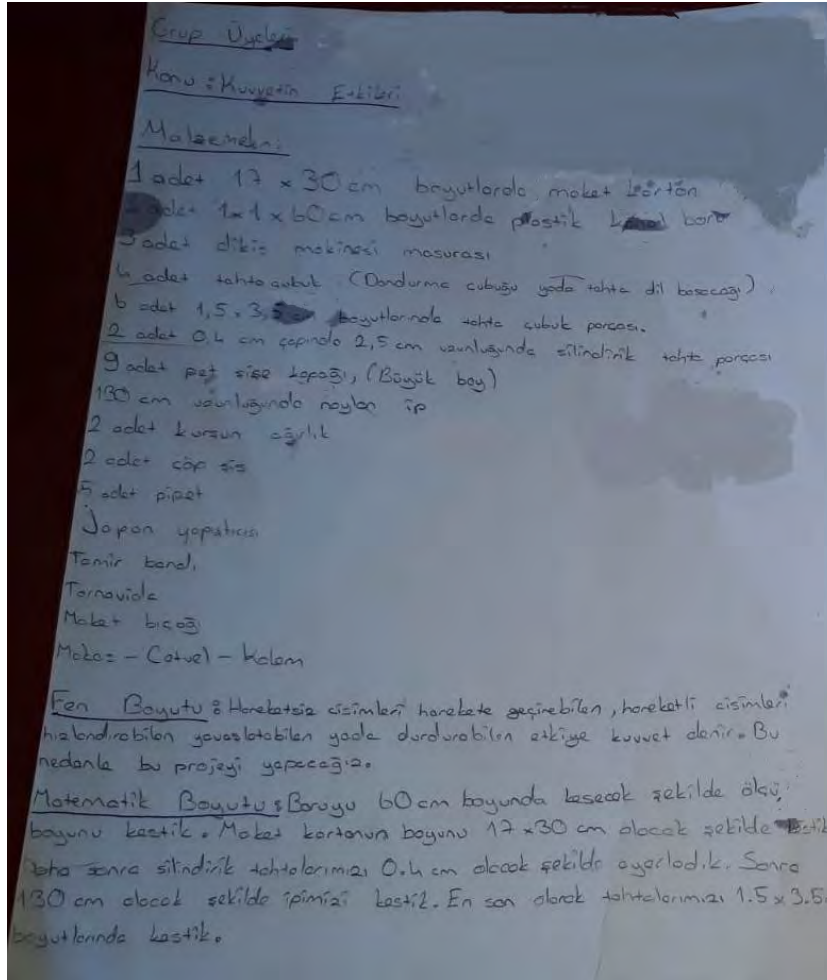 Grup Üyeleri
Konu: Kuvvetin Etkileri
Malzemeler:
1 adet 17 x 30 cm boyutlarda maket karton
adet 1x1x60 cm boyutlarda plastik boru
3 adet dikiş makinesi masurası
4 adet tahta çubuk (Dondurma çubuğu yada tahta dil basacağı).
6 adet 1,5 x 3,5 boyutlarında tahta çubuk parçası.
2 adet 0,4 cm çapında 2,5 cm uzunluğunda silindirik tahta parçası
9 adet pet şişe kapağı, (Büyük boy)
130 cm uzunluğunda naylon ip
2 adet kurşun ağırlık
2 adet çöp şiş
5 adet pipet
Japon yapıştırıcısı
Tamir bandı
Tornavida
Maket bıçağı
Makas - Cetvel - Kalem
Fen Boyutu: Hareketsiz cisimleri harekete geçirebilen, hareketli cisimleri
hızlandırabilen yavaşlatabilen yada durdurabilen etkiye kuvvet denir. Bu
nedenle bu projeyi yapacağız.
Matematik Boyutu: Boruyu 60 cm boyunda kesecek şekilde ölçü,
boyunu kestik. Maket kartonun boyunu 17 x 30 cm olacak şekilde kestik
Daha sonra silindirik tahtalarımızı 0.4 cm olacak şekilde ayarladık. Sonra
130 cm olacak şekilde ipimizi kestik. En son olarak tahtalarımızı 1.5 x 3.5
boyutlarında kestik.